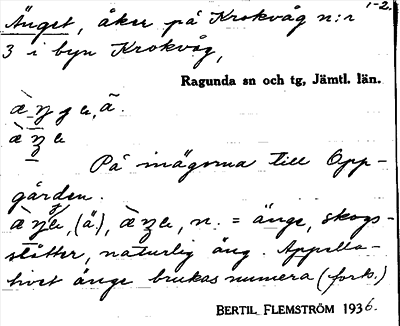 1-2.
Änget, åker på Krokvåg n:r
3 i byn Krokvåg,
Ragunda sn och tg, Jämtl. län.
På inägorna till Opp-
gården.
(ä), n. = änge, skogs-
slåtter, naturlig äng. Appella-
tivet änge brukas numera (fork.)
BERTIL FLEMSTRÖM 1936.